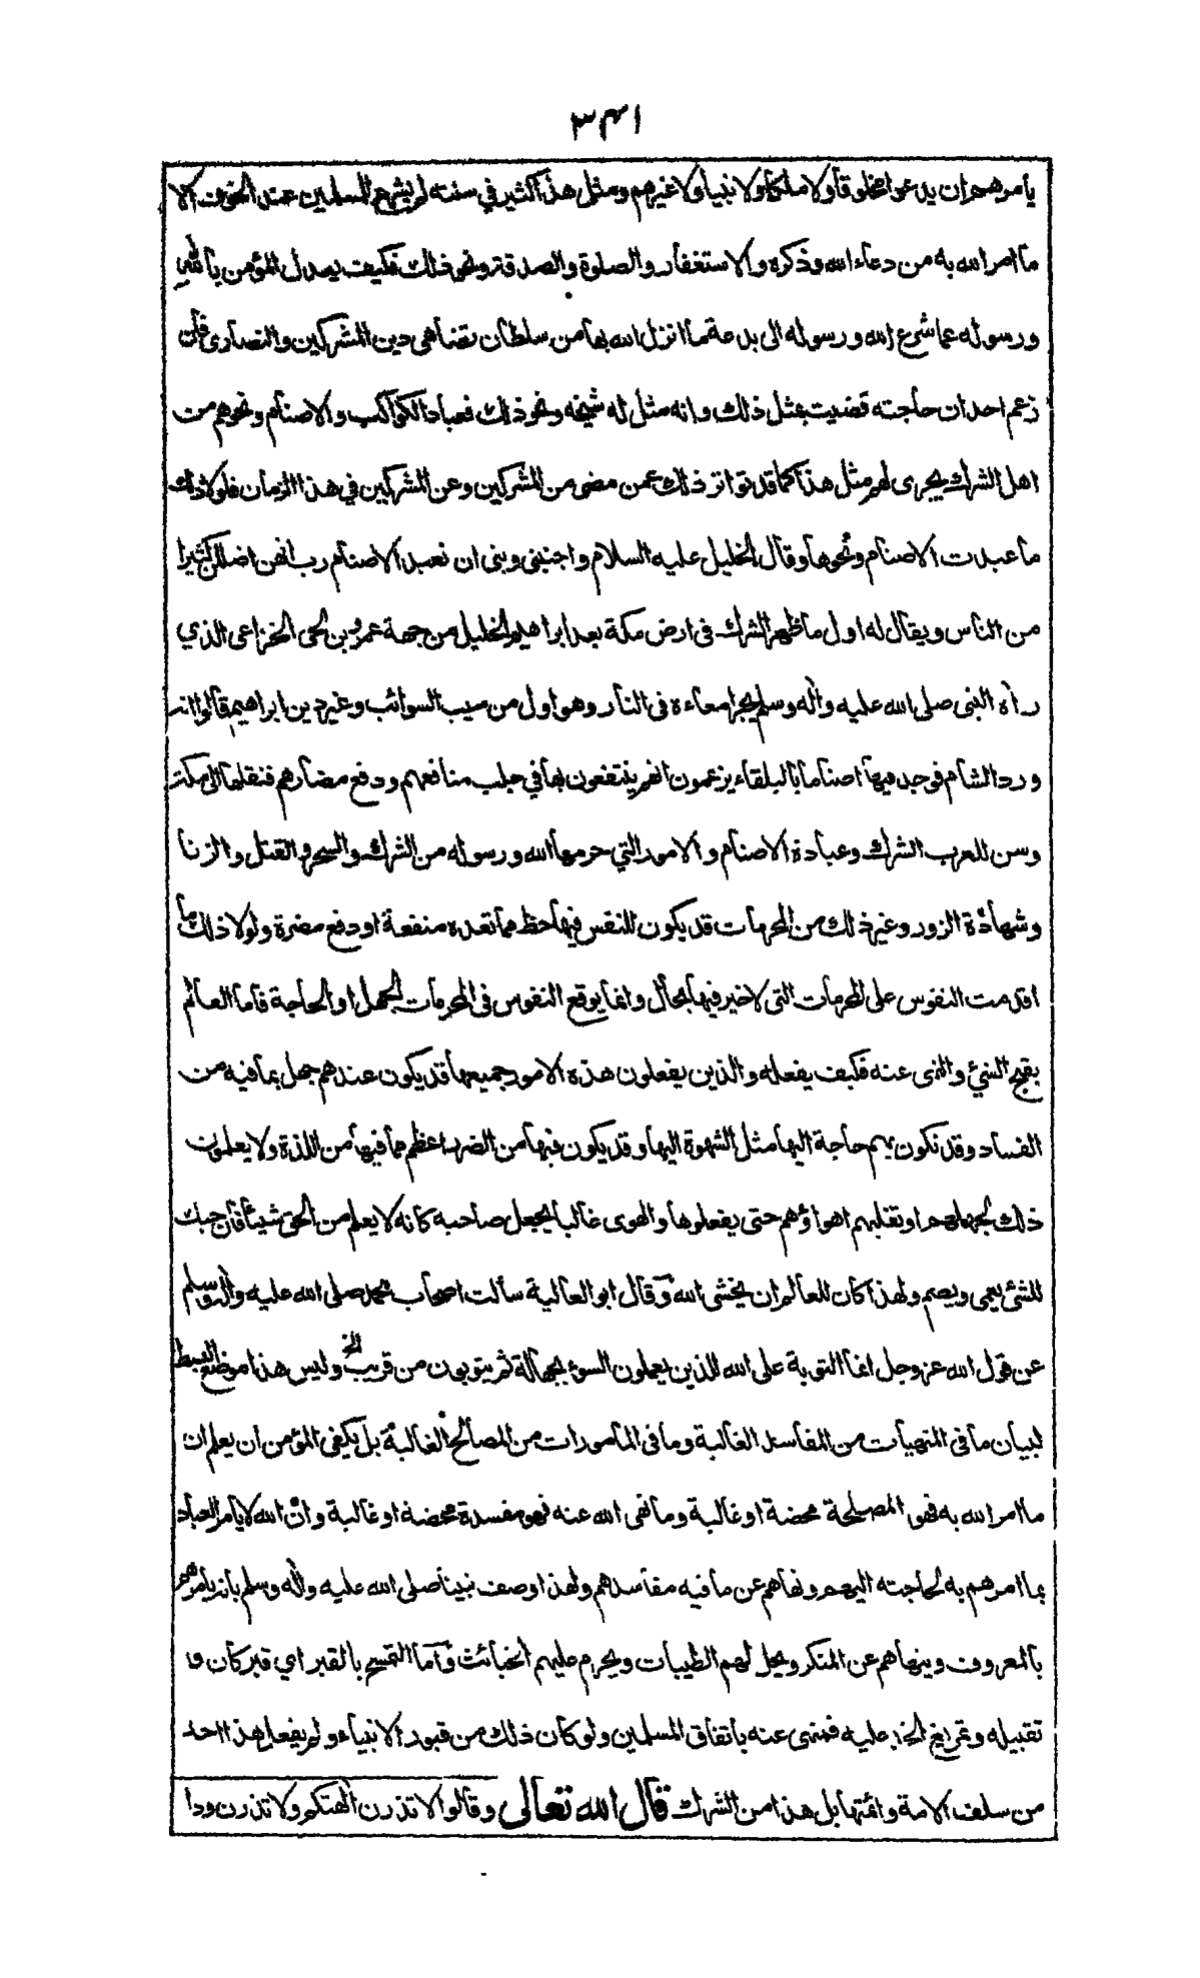 ٣٤١
يأمرهم ان يدعوا مخلوقا ولا ملكا ولا نبيا ولا غيرهم ومثل هذا كثير في سنته لم يشرع للمسلمين عند الخوف الا
ما امر الله به من دعاء الله وذكره والاستغفار والصلوة والصدقة ونحو ذلك فكيف يعدل المؤمن بالله
ورسوله عما شرع الله ورسوله الى بدعة ما انزل الله بها من سلطان تضاهى دين المشركين والنصارى فان
زعم احد ان حاجته قضيت بمثل ذلك وانه مثل له شيخه ونحو ذلك فعباد الكواكب والاصنام ونحوهم من
اهل الشرك يجرى لهم مثل هذا كما قد تواتر ذلك عمن مضى من المشركين وعن المشركين في هذا الزمان فلولا ذلك
ما عبدت الاصنام ونحوها وقال الخليل عليه السلام واجنبنى وبنى ان نعبد الاصنام رب انهن اضللن كثيرا
من الناس ويقال له اول ما ظهر الشرك فى ارض مكة بعد ابراهيم الخليل من جهة عمرو بن لحى الخزاعى الذي
رآه النبى صلى الله عليه وآله وسلم يجر امعاءه فى النار وهو اول من سيب السوائب وغير دين ابراهيم قالوا انه
ورد الشام فوجد فيها اصناما بالبلقاء يزعمون انهم ينتفعون بها في جلب منافعهم ودفع مضارهم فنقلها الى مكة
وسن للعرب الشرك وعبادة الاصنام والامور التي حرمها الله ورسوله من الشرك والسحر والقتل والزنا
وشهادة الزور وغير ذلك من المحرمات قد يكون للنفس فيها حظ مما تعده منفعة او دفع مضرة ولولا ذلك ما
اقدمت النفوس على المحرمات التى لا خير فيها بحال وانما يوقع النفوس فى المحرمات الجهل او الحاجة فاما العالم
بقبح الشئ والنهى عنه فكيف يفعله والذين يفعلون هذه الامور جميعها قد يكون عندهم جهل بما فيه من
الفساد وقد تكون بهم حاجة اليها مثل الشهوة اليها وقد يكون فيها من الضرر اعظم مما فيها من اللذة ولا يعلمون
ذلك لجهلهم او تغلبهم اهواؤهم حتى يفعلوها والهوى غالبا يجعل صاحبه كانه لا يعلم من الحق شيئا فان حبك
للشئ يعمى ويصم ولهذا كان للعالم ان يخشى الله وقال ابو العالية سألت اصحاب محمد صلى الله عليه وآله وسلم
عن قول الله عز وجل انما التوبة على الله للذين يعملون السوء بجهالة ثم يتوبون من قريب الخ وليس هذا موضع البسط
لبيان ما فى المنهيات من المفاسد الغالبة وما فى المأمورات من المصالح الغالبة بل يكفى المؤمن ان يعلم ان
ما امر الله به فهو المصلحة محضة او غالبة وما نهى الله عنه فهو مفسدة محضة او غالبة وان الله لا يأمر العباد
بما امرهم به لحاجته اليهم ونهاهم عن ما فيه مفاسدهم ولهذا وصف نبينا صلى الله عليه وآله وسلم بانه يأمرهم
بالمعروف وينهاهم عن المنكر ويحل لهم الطيبات ويحرم عليهم الخبائث واما التمسح بالقبر اي قبر كان و
تقبيله وتمريغ الخد عليه فمنهى عنه باتفاق المسلمين ولو كان ذلك من قبور الانبياء ولم يفعل هذا احد
من سلف الامة وائمتها بل هذا من الشرك قال الله تعالى وقالوا لا تذرن الهتكم ولا تذرن ودا